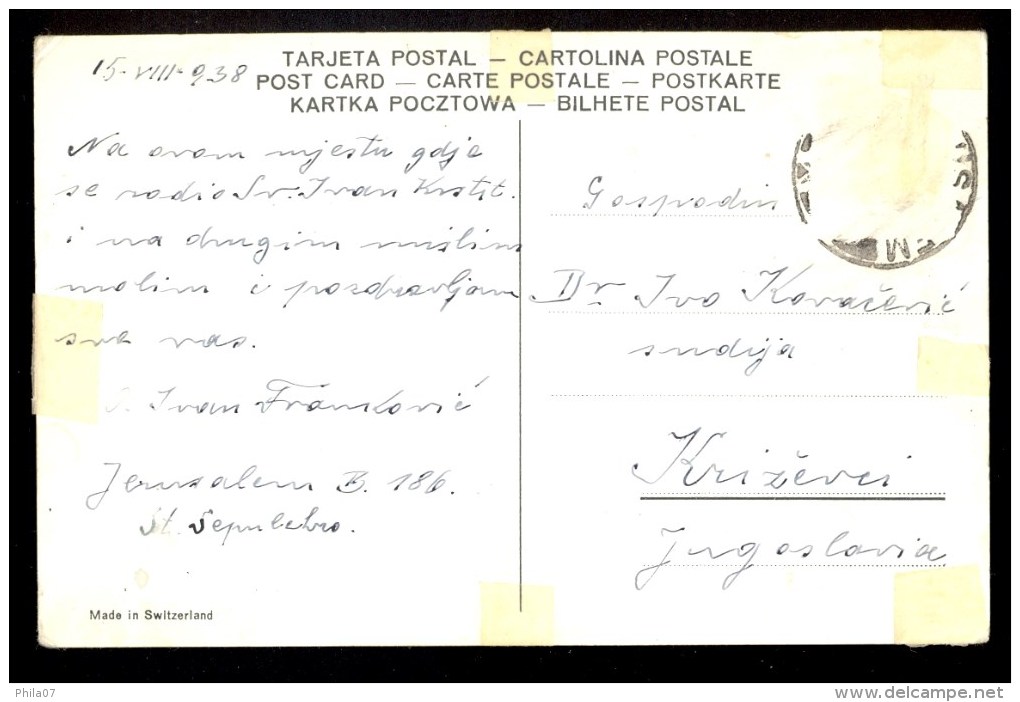 15-VIII-938
TARJETA POSTAL — CARTOLINA POSTALE
POST CARD — CARTE POSTALE — POSTKARTE
KARTKA POCZTOWA — BILHETE POSTAL
Na ovom mjestu gdje
se rodio Sv. Ivan Krstit.
i na drugim mislim
molim i pozdravljam
sve vas.
Ivan Franković
Jerusalem B. 186.
St. Sepulchro.
Made in Switzerland
Gospodin
Dr Ivo Kovačević
sudija
Križevci
Jugoslavia
Phila07
www.delcampe.net